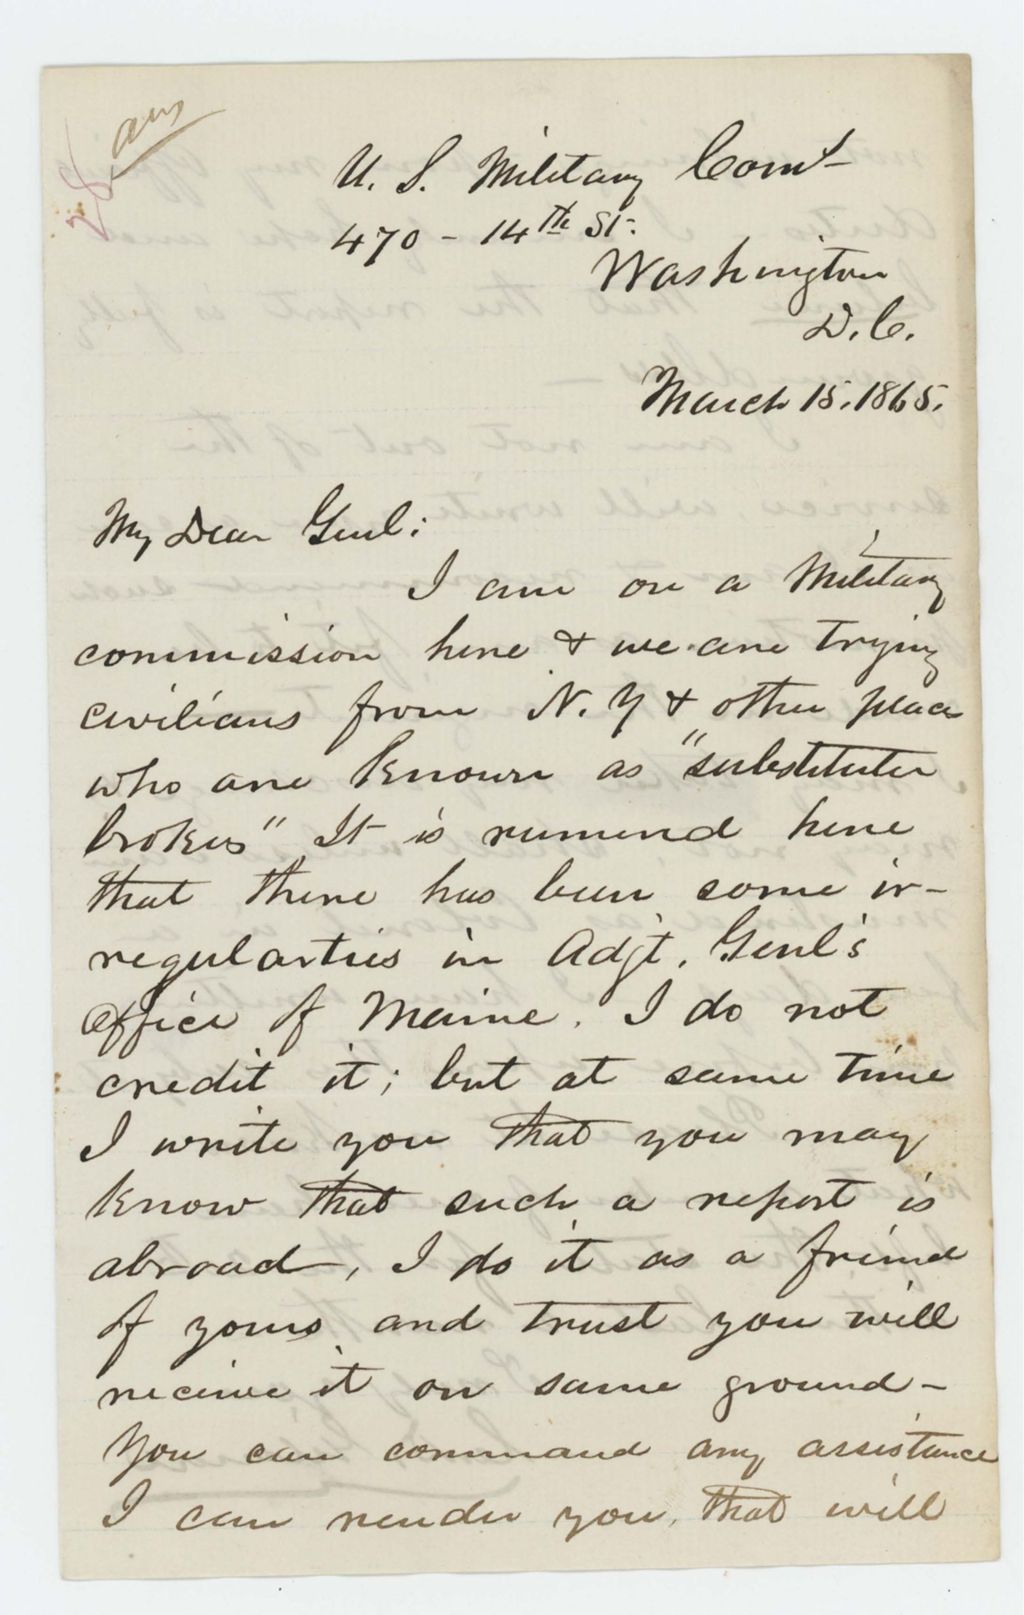 ans
28
U. S. Military Com'
470 - 14th St.
Washington
D. C.
March 15. 1865.
My Dear Genl:
I am on a Military
commission here & we are trying
civilians from N. Y & other place
who are known as "substitute
brokers" It is rumored here
that there has been some ir-
regularties in Adjt. Genl's
Office of Maine. I do not
credit it; but at same time
I write you that you may
know that such a report is
abroad, I do it as a friend
of yours and trust you will
receive it on same ground-
You can command any assistance
I can render you, that will